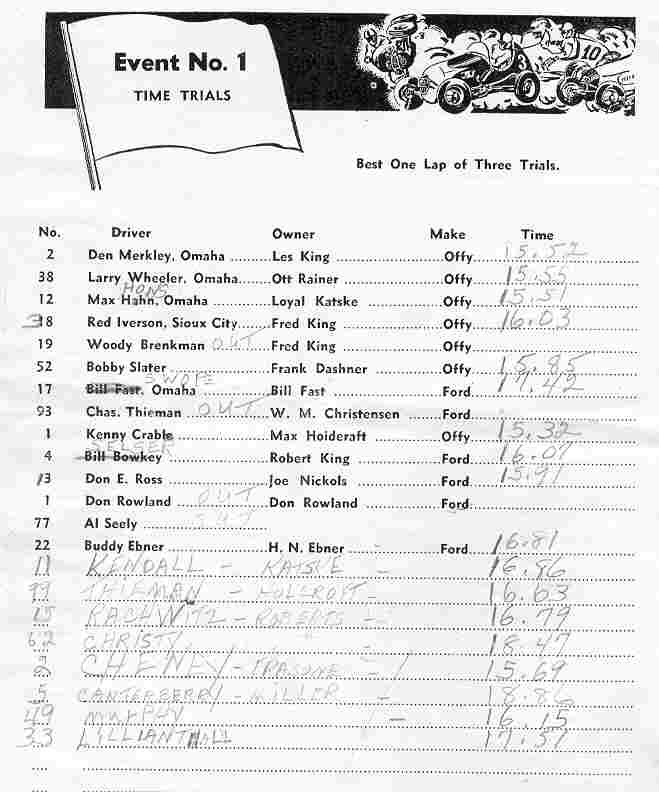 Event No. 1
TIME TRIALS
3 10
Best One Lap of Three Trials.
No. Driver Owner Make Time
2 Den Merkley, Omaha ..........Les King ......................Offy 15.52
38 Larry Wheeler, Omaha......Ott Rainer ......................Offy 15.55
HONS
12 Max Hahn, Omaha ............Loyal Katske ..................Offy 15.51
318 Red Iverson, Sioux City......Fred King ......................Offy 16.03
19 Woody Brenkman OUT Fred King ......................Offy
52 Bobby Slater ......................Frank Dashner ................Offy 15.85
SWOPE
17 Bill Fast, Omaha ................Bill Fast ........................Ford 17.42
93 Chas. Thieman OUT W. M. Christensen ..........Ford
1 Kenny Crable ....................Max Hoideraft ................Offy 15.32
SELSER
4 Bill Bowkey ......................Robert King ....................Ford 16.07
13 Don E. Ross ......................Joe Nickols ....................Ford 15.91
1 Don Rowland OUT Don Rowland ..................Ford
77 Al Seely OUT
22 Buddy Ebner ......................H. N. Ebner ....................Ford 16.81
11 KENDALL - KATSKE - 16.86
99 THIEMAN - HOLCROFT - 16.63
15 RACHWITZ - ROBERTS - 16.79
62 CHRISTY - 18.47
2 CHENEY - 15.69
5 CANTERBERRY - MILLER - 18.86
49 MURPHY - 16.15
33 LILLIANTHALL 17.51